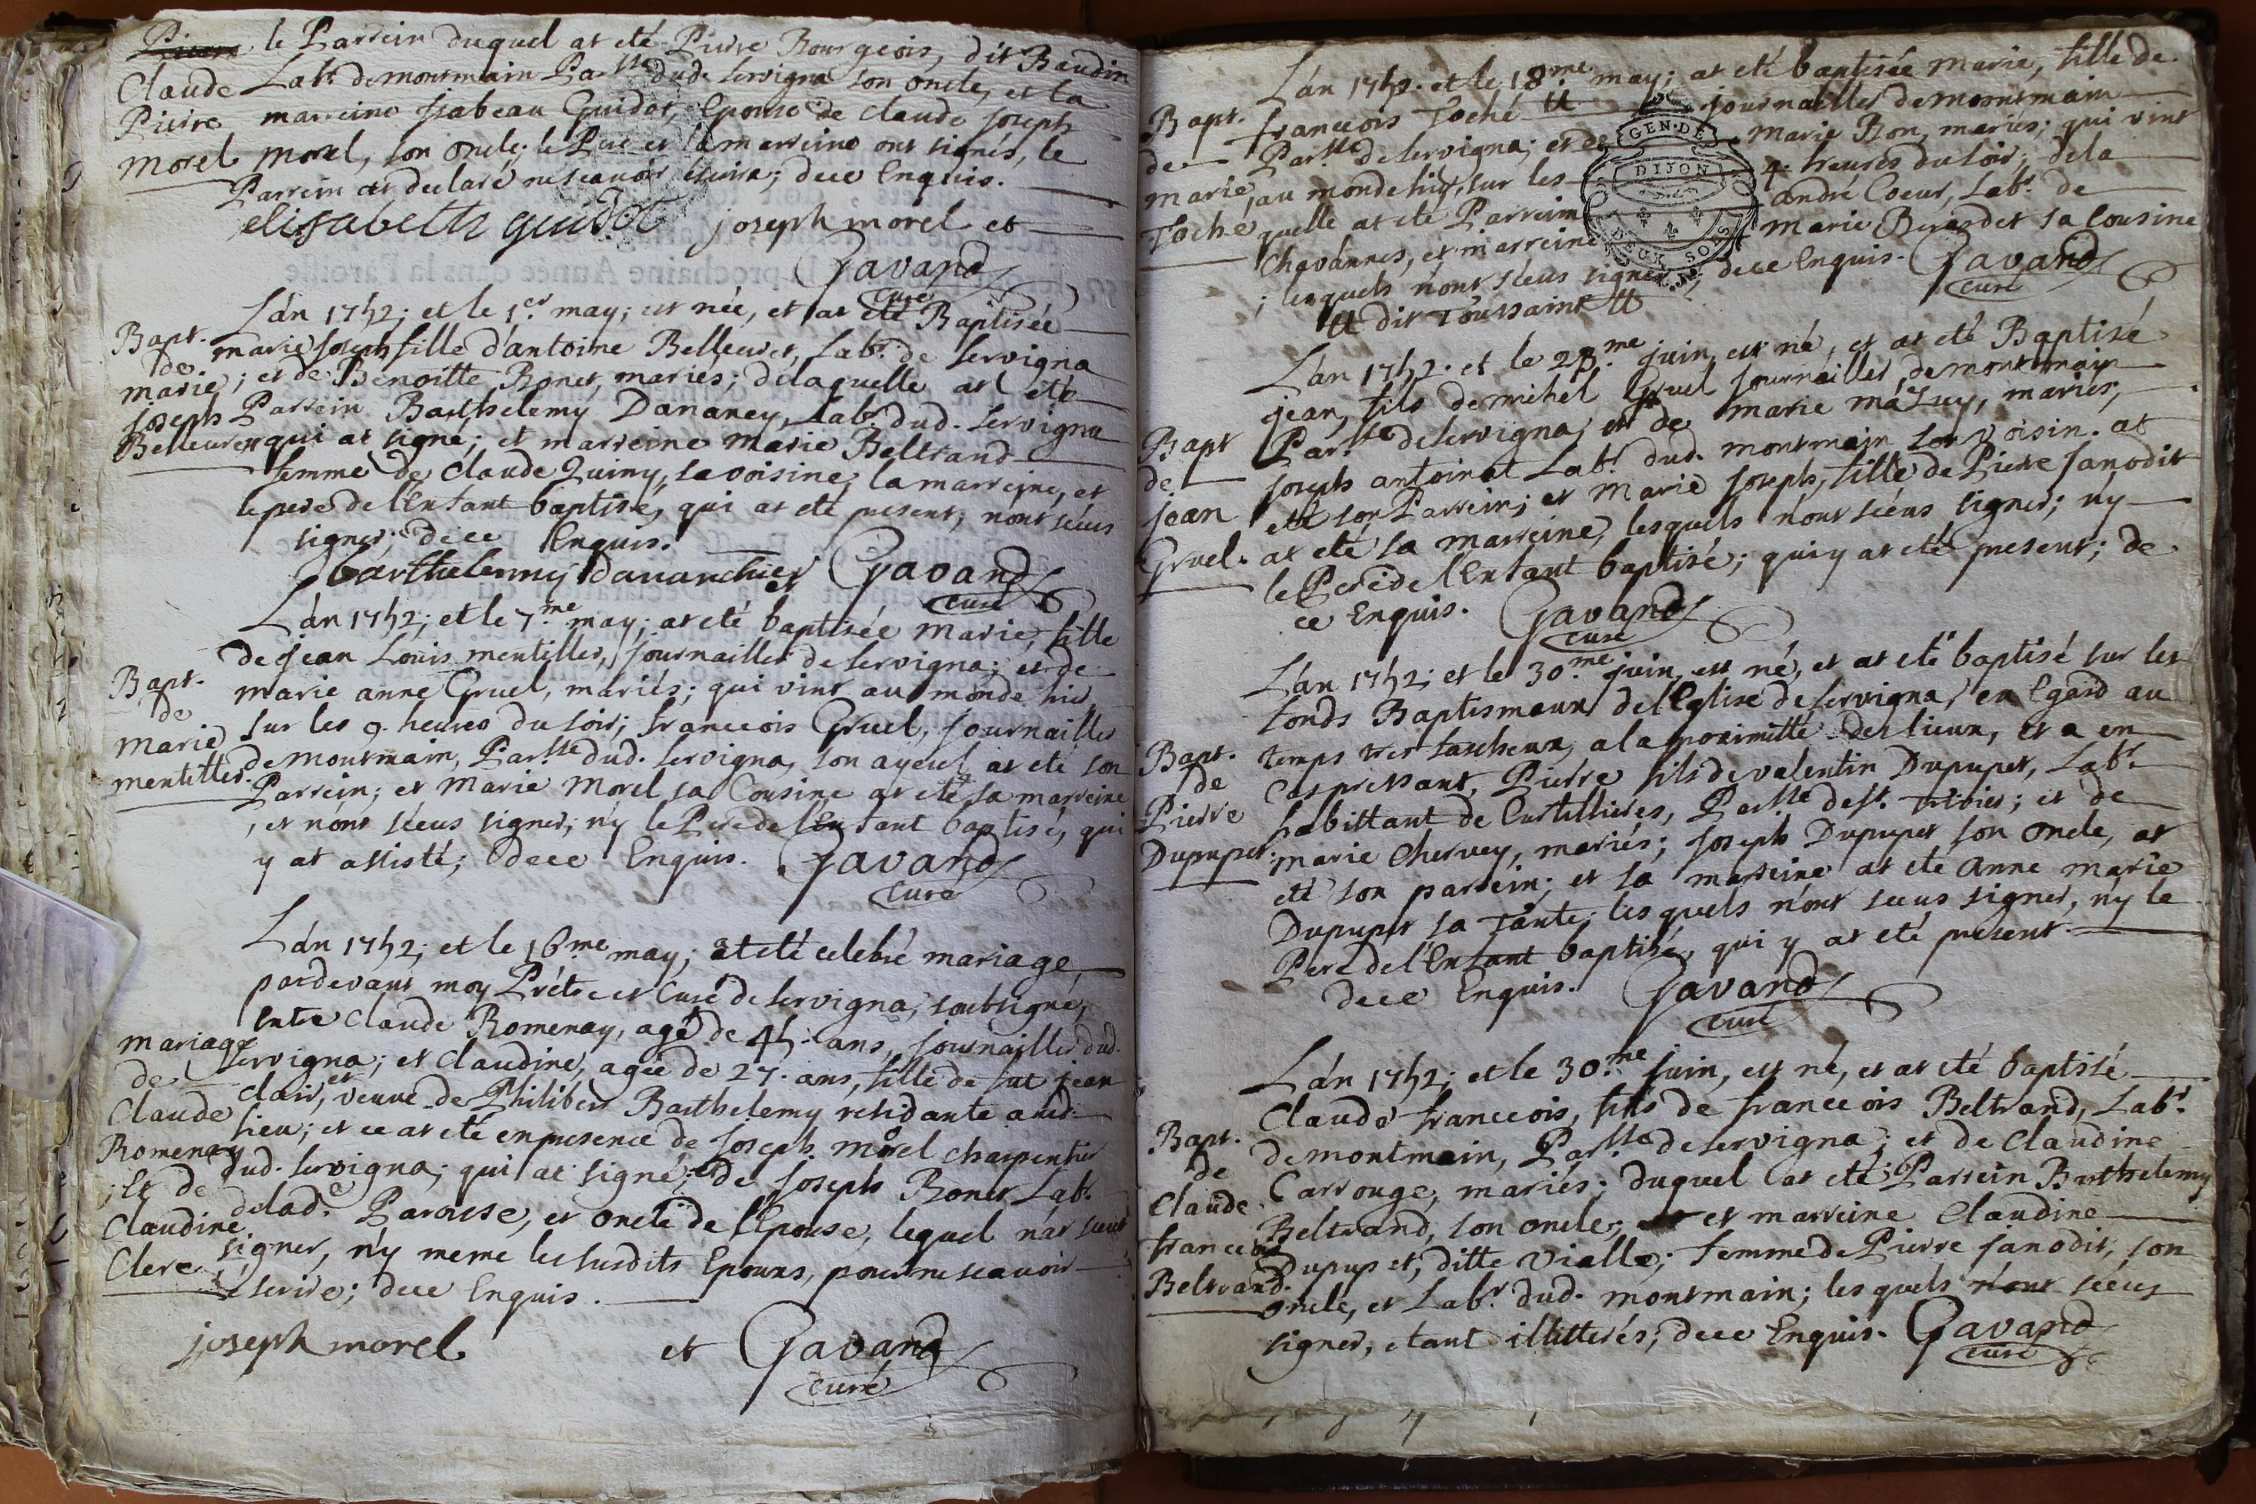 le Parrein duquel at eté Pierre Bourgeois, dit Baudin
Claude
Labr. de montmain Parsse dud. servigna son oncle, et la
Pierre
marreine Isabeau Guidot, Epouse de Claude Joseph
Morel
morel, son oncle; le Pere et la marreine ont signés, le
Parrein at declaré ne scavoir écrire; dece Enquis.
elisabeth guidot joseph morel et
Gavand
curé
L'án 1752; et le 1.er may; est née, et at eté Baptisée
Bapt.
de
marie
joseph
Belleuret
marie joseph fille d'antoine Belleuret, Labr. de servigna
; et de Benoitte Bonet, mariés; de laquelle at eté
Parrein Barthelemy Dananey, Labr. dud. servigna
qui at signé; et marreine marie Beltrand
femme de claude Quimy, sa voisine; la marreine, et
le pere de l'Enfant baptisé, qui at eté present, n'ont sceus
signer; dece Enquis.
barthelemy dananchier
et Gavand
curé
L'án 1752; et le 7.me may; at eté baptisée Marie, fille
de jean Louis mentiller, journailler de servigna; et de
Bapt.
de
Marie
mentiller.
marie anne Gruel, mariés; qui vint au monde hier
sur les 9. heures du soir; francois Gruel, journailler
de montmain, Parsse dud. servigna, son ayeul at eté son
Parrein; et Marie Morel sa Cousine at eté sa marreine
, et n'ont sceus signer; n'y le Pere de l'Enfant baptisé, qui
y at assisté; dece Enquis. Gavand
curé
L'án 1752; et le 16.me may; at eté celebré mariage,
pardevant moy Prétre et Curé de servigna, soubsigné,
Entre Claude Romenay, agé de 45. ans, journailler dud.
mariage
de
Claude
Romenay
; Et de
Claudine
Clerc
servigna; et claudine, agée de 27. ans, fille de fut jean
clair, et veuve de Philibert Barthelemy residante aud.
lieu; et ce at eté en presence de joseph morel charpentier
dud. servigna; qui at signé; et de joseph Bonet Labr.
delad.e Paroisse, et oncle de l'Epouse, lequel n'at sceut
signer, n'y meme les susdits Epoux, pour ne scavoir
escrire; dece Enquis.
joseph morel et Gavand
curé
L'án 1752. et le 18.me may; at eté baptisée marie, fille de
francois Toché # journailler de montmain
Bapt.
de
marie
Toché
Parsse de servigna; et de marie Bon, mariés; qui vint
au monde hier, sur les 4. heures du soir; de la
quelle at eté Parrein andré Coeur, Labr. de
Chavannes, et marreine marie Berardet sa Cousine
; lesquels n'ont sceus signer; dece Enquis. Gavand
curé
# dit Toussaint #
GEN. DE
DIJON
DEUX SOLS
L'an 1752. et le 23.me juin, est né, et at eté Baptisé
jean, fils de michel Gruel journailler, de montmain
Bapt
de
jean
Gruel.
Parsse de servigna, et de marie mazuy, mariés;
joseph antoinat Labr. dud. montmain son voisin. at
eté son Parrein; et Marie joseph, fille de Pierre janodit
at eté sa marreine, lesquels n'ont sceus signer; n'y
le Pere de l'Enfant baptisé; qui y at eté present; de
ce Enquis. Gavand
curé
L'án 1752; et le 30.me juin, est né, et at eté baptisé sur les
fonds Baptismaux de l'Eglise de servigna, en Egard au
Bapt.
de
Pierre
Dupupet.
temps tres fascheux, a la proximitté des lieux, et a en
cas pressant, Pierre fils de valentin Dupupet, Labr.
habittant de Curtillieres, Parsse de st. trivier; et de
marie Chervey, mariés; joseph Dupupet son oncle, at
eté son parrein; et sa marreine at eté anne marie
Dupupet sa Tante; lesquels n'ont sceus signer, n'y le
Pere de l'Enfant baptisé, qui y at eté present.
dece Enquis. Gavand
curé
L'án 1752; et le 30.me juin, est né, et at eté baptisé
Claude francois, fils de francois Beltrand, Labr.
Bapt.
de
Claude
francois
Beltrand.
de montmain, Parsse de servigna; et de Claudine
Carrouge, mariés; duquel at eté Parrein Barthelemy
Beltrand, son oncle; et marreine Claudine
Dupupet, ditte Vialle; femme de Pierre janodit, son
oncle, et Labr. dud. montmain; lesquels n'ont sceus
signer, etant illitterés; dece Enquis. Gavand
curé